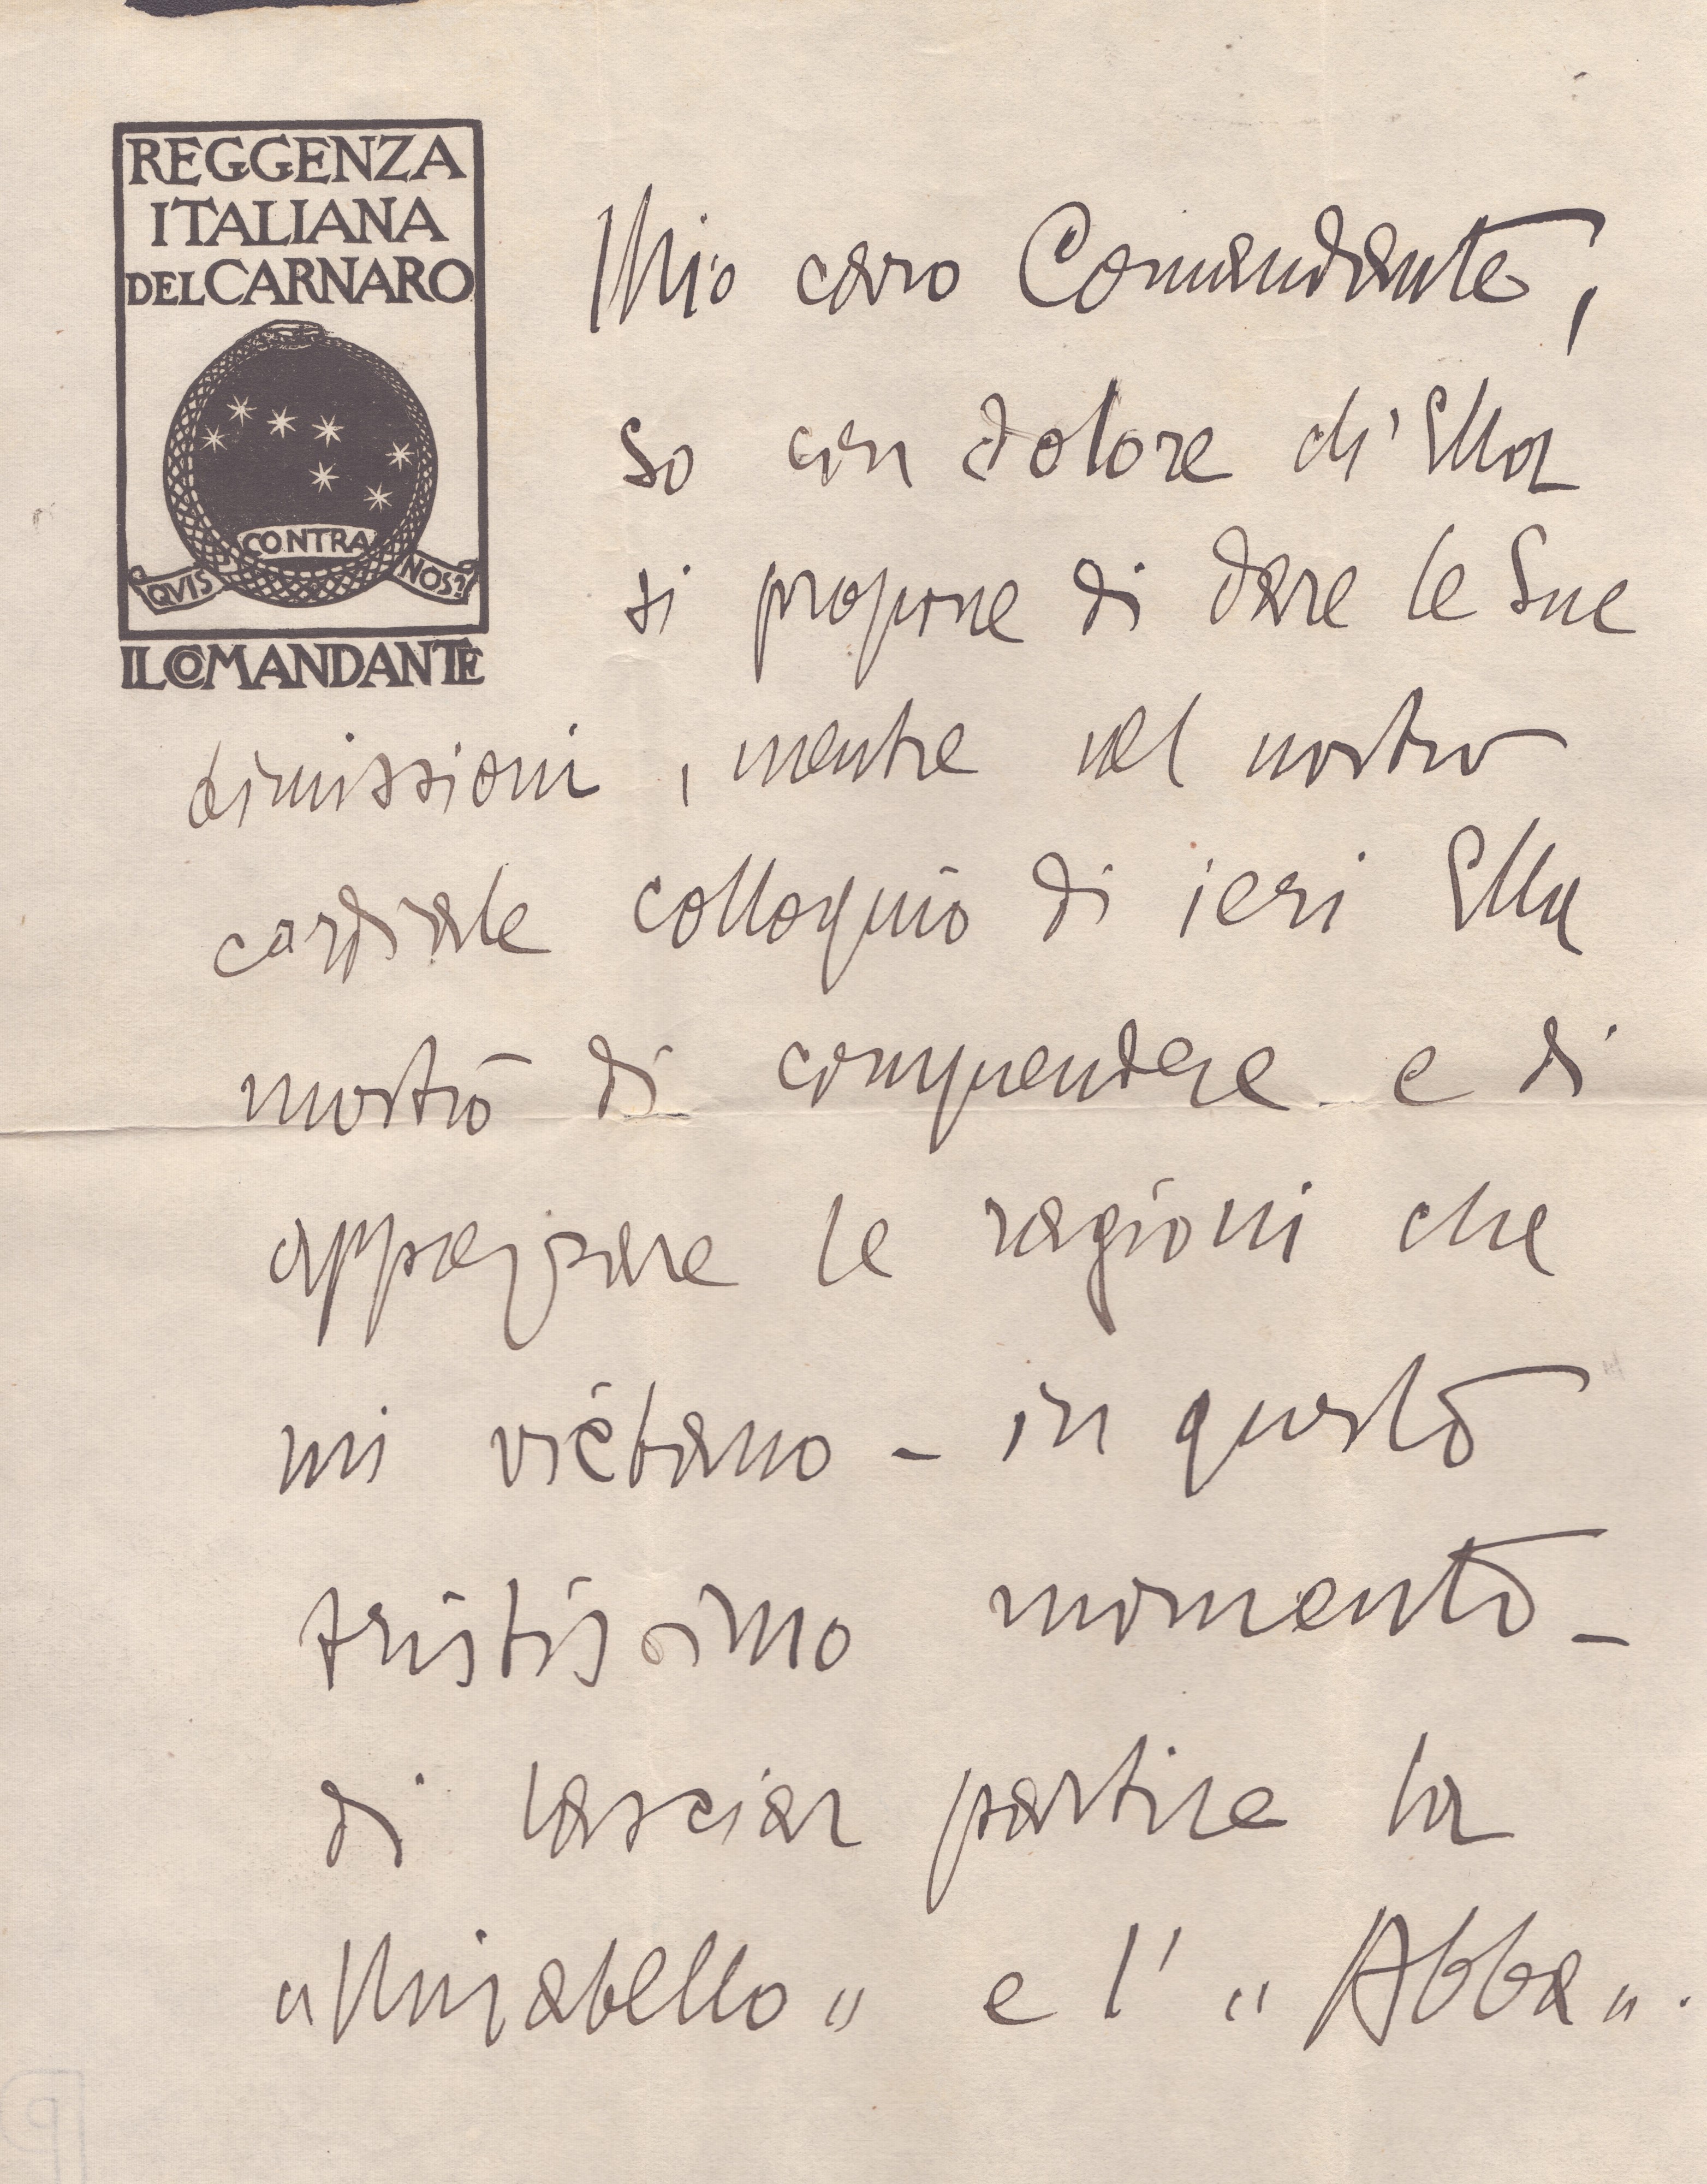 REGGENZA
ITALIANA
DEL CARNARO
QVIS CONTRA NOS?
IL COMANDANTE
Mio caro Comandante,
so con dolore ch'Ella
si propone di dare le Sue
dimissioni, mentre nel nostro
cordiale colloquio di ieri Ella
mostrò di comprendere e di
apprezzare le ragioni che
mi viètano - in questo
tristissimo momento -
di lasciar partire la
"Mirabello" e l' "Abba".